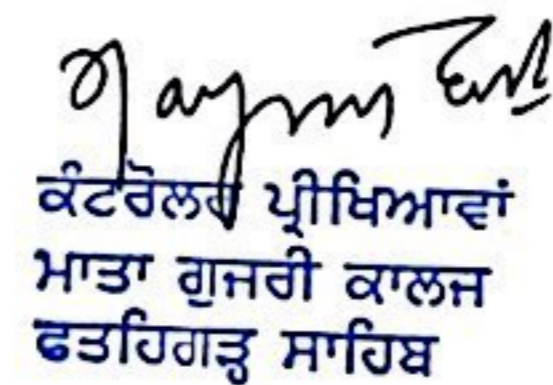 ਕੰਟਰੋਲਰ ਪ੍ਰੀਖਿਆਵਾਂ
ਮਾਤਾ ਗੁਜਰੀ ਕਾਲਜ
ਫਤਹਿਗੜ੍ਹ ਸਾਹਿਬ